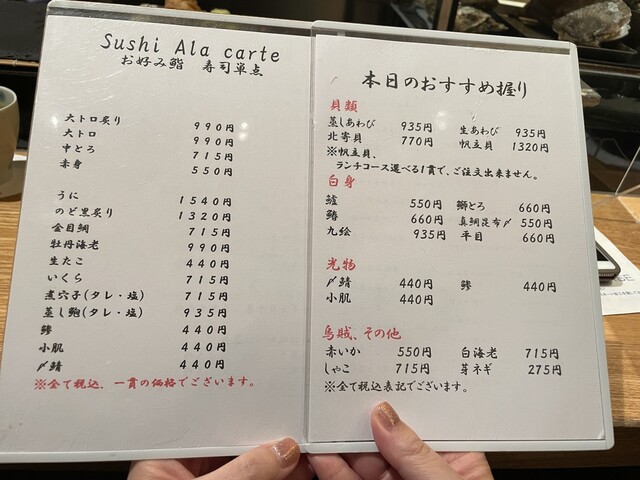 Sushi Ala carte
お好み鮨 寿司単点
大トロ炙り 990円
大トロ 990円
中とろ 715円
赤身 550円
うに 1540円
のど黒炙り 1320円
金目鯛 715円
牡丹海老 990円
生たこ 440円
いくら 715円
煮穴子(タレ・塩) 715円
蒸し鮑(タレ・塩) 935円
鯵 440円
小肌 440円
〆鯖 440円
※全て税込、一貫の価格でございます。
本日のおすすめ握り
貝類
蒸しあわび 935円 生あわび 935円
北寄貝 770円 帆立貝 1320円
※帆立貝、
ランチコース選べる1貫で、ご注文出来ません。
白身
鱸 550円 鰤とろ 660円
鰆 660円 真鯛昆布〆 550円
九絵 935円 平目 660円
光物
〆鯖 440円 鯵 440円
小肌 440円
烏賊、その他
赤いか 550円 白海老 715円
しゃこ 715円 芽ネギ 275円
※全て税込表記でございます。